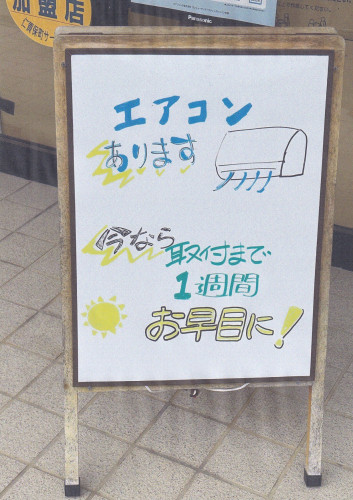 加盟店
Panasonic
エアコン
あります
今なら
取付まで
1週間
お早目に!